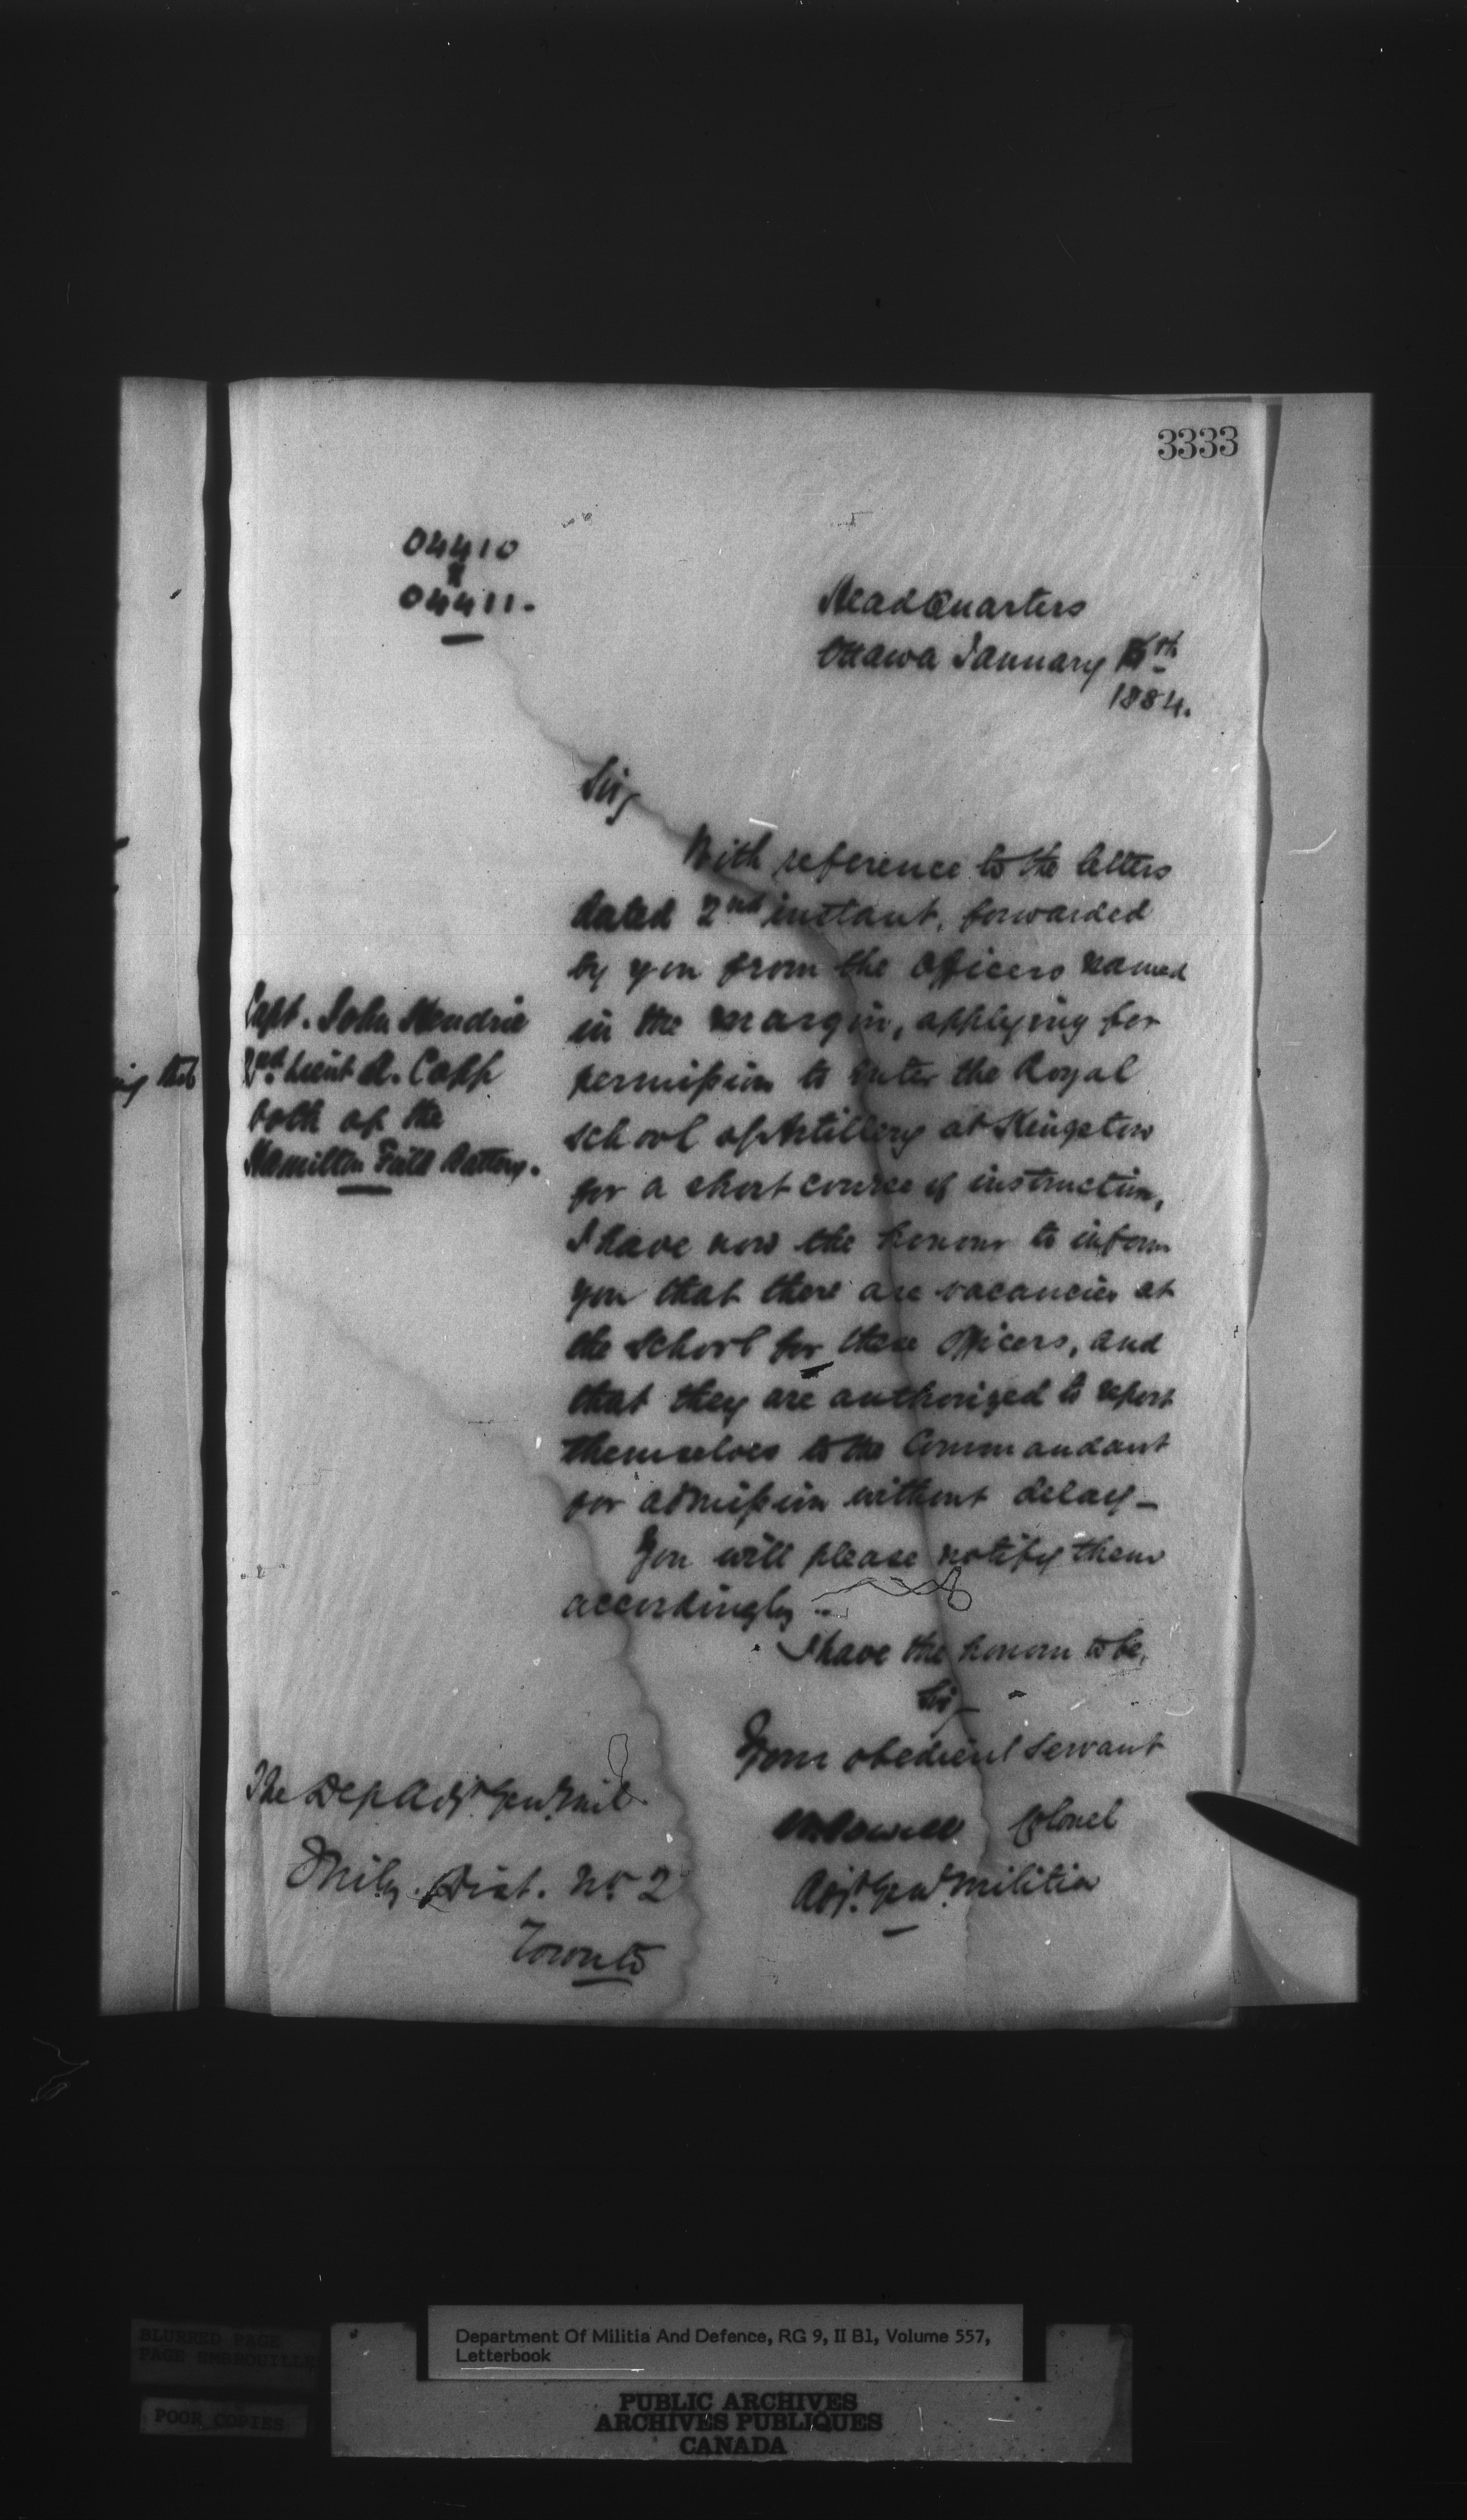 3333
04410
&
04411.
HeadQuarters
Ottawa January 15th
1884.
Sir,
With reference to the letters
dated 2nd instant, forwarded
by you from the officers named
in the margin, applying for
permission to enter the Royal
School of Artillery at Kingston
for a short course of instruction,
I have now the honour to inform
you that there are vacancies at
the School for these officers, and
that they are authorized to report
themselves to the Commandant
for admission without delay –
You will please notify them
accordingly –
Capt. John Hendrie
2nd Lieut A. Copp
both of the
Hamilton Field Battery.
I have the honour to be,
Sir,
Your obedient servant
Colonel
Adjt. Genl. Militia
The Dep Adjt. Genl. Mil.
Mily. Dist. No 2
Toronto
BLURRED PAGE
PAGE EMBROUILLE
POOR COPIES
Department Of Militia And Defence, RG 9, II B1, Volume 557,
Letterbook
PUBLIC ARCHIVES
ARCHIVES PUBLIQUES
CANADA